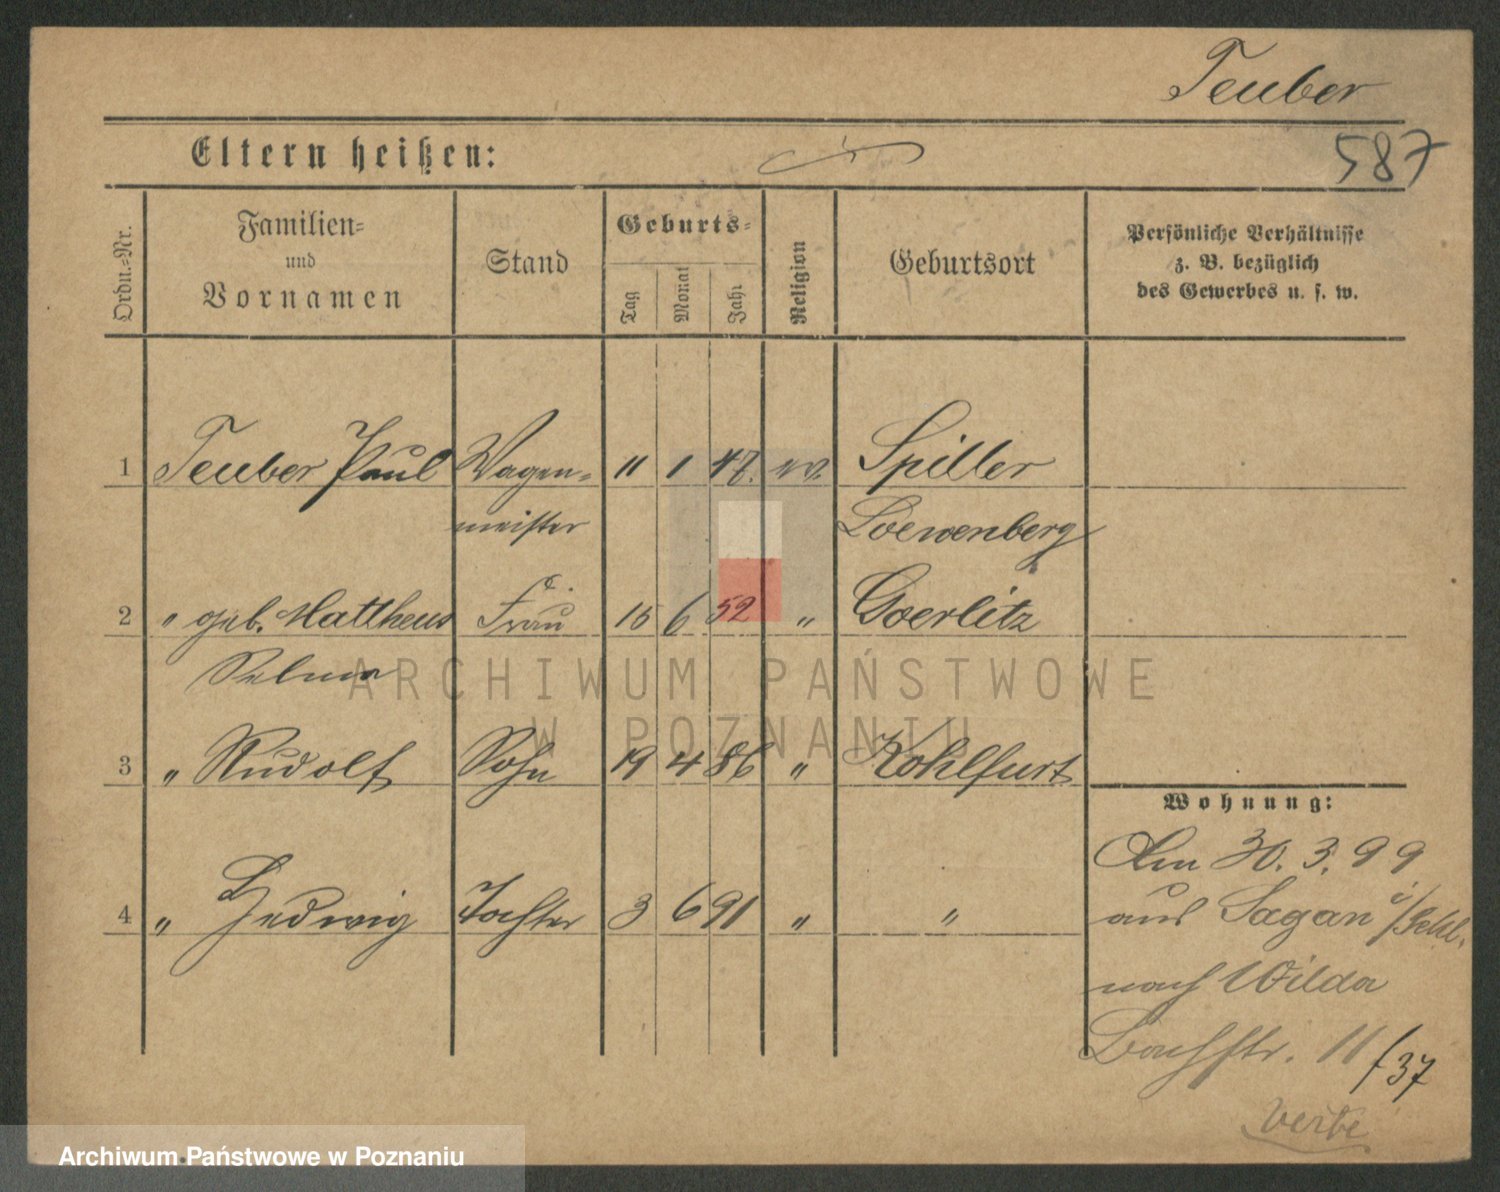 Teuber
587
Eltern heißen:
Ordn.-Nr.
Familien-
und
Vornamen
Stand
Geburts-
Tag
Monat
Jahr
Religion
Geburtsort
Persönliche Verhältnisse
z. B. bezüglich
des Gewerbes u. s. w.
1 Teuber Paul Wagen- 11 1 47. ev. Spiller
meister Loewenberg
2 " geb. Mattheus Frau 15 6 52 " Goerlitz
Selma
3 " Rudolf Sohn 19 4 86 " Kohlfurt
Wohnung:
Am 30. 3. 99
4 " Hedwig Tochter 3 6 91 " "
aus Sagan i/Schl.
nach Wilda
Bachstr. 11/37
ARCHIWUM PAŃSTWOWE
W POZNANIU
Archiwum Państwowe w Poznaniu